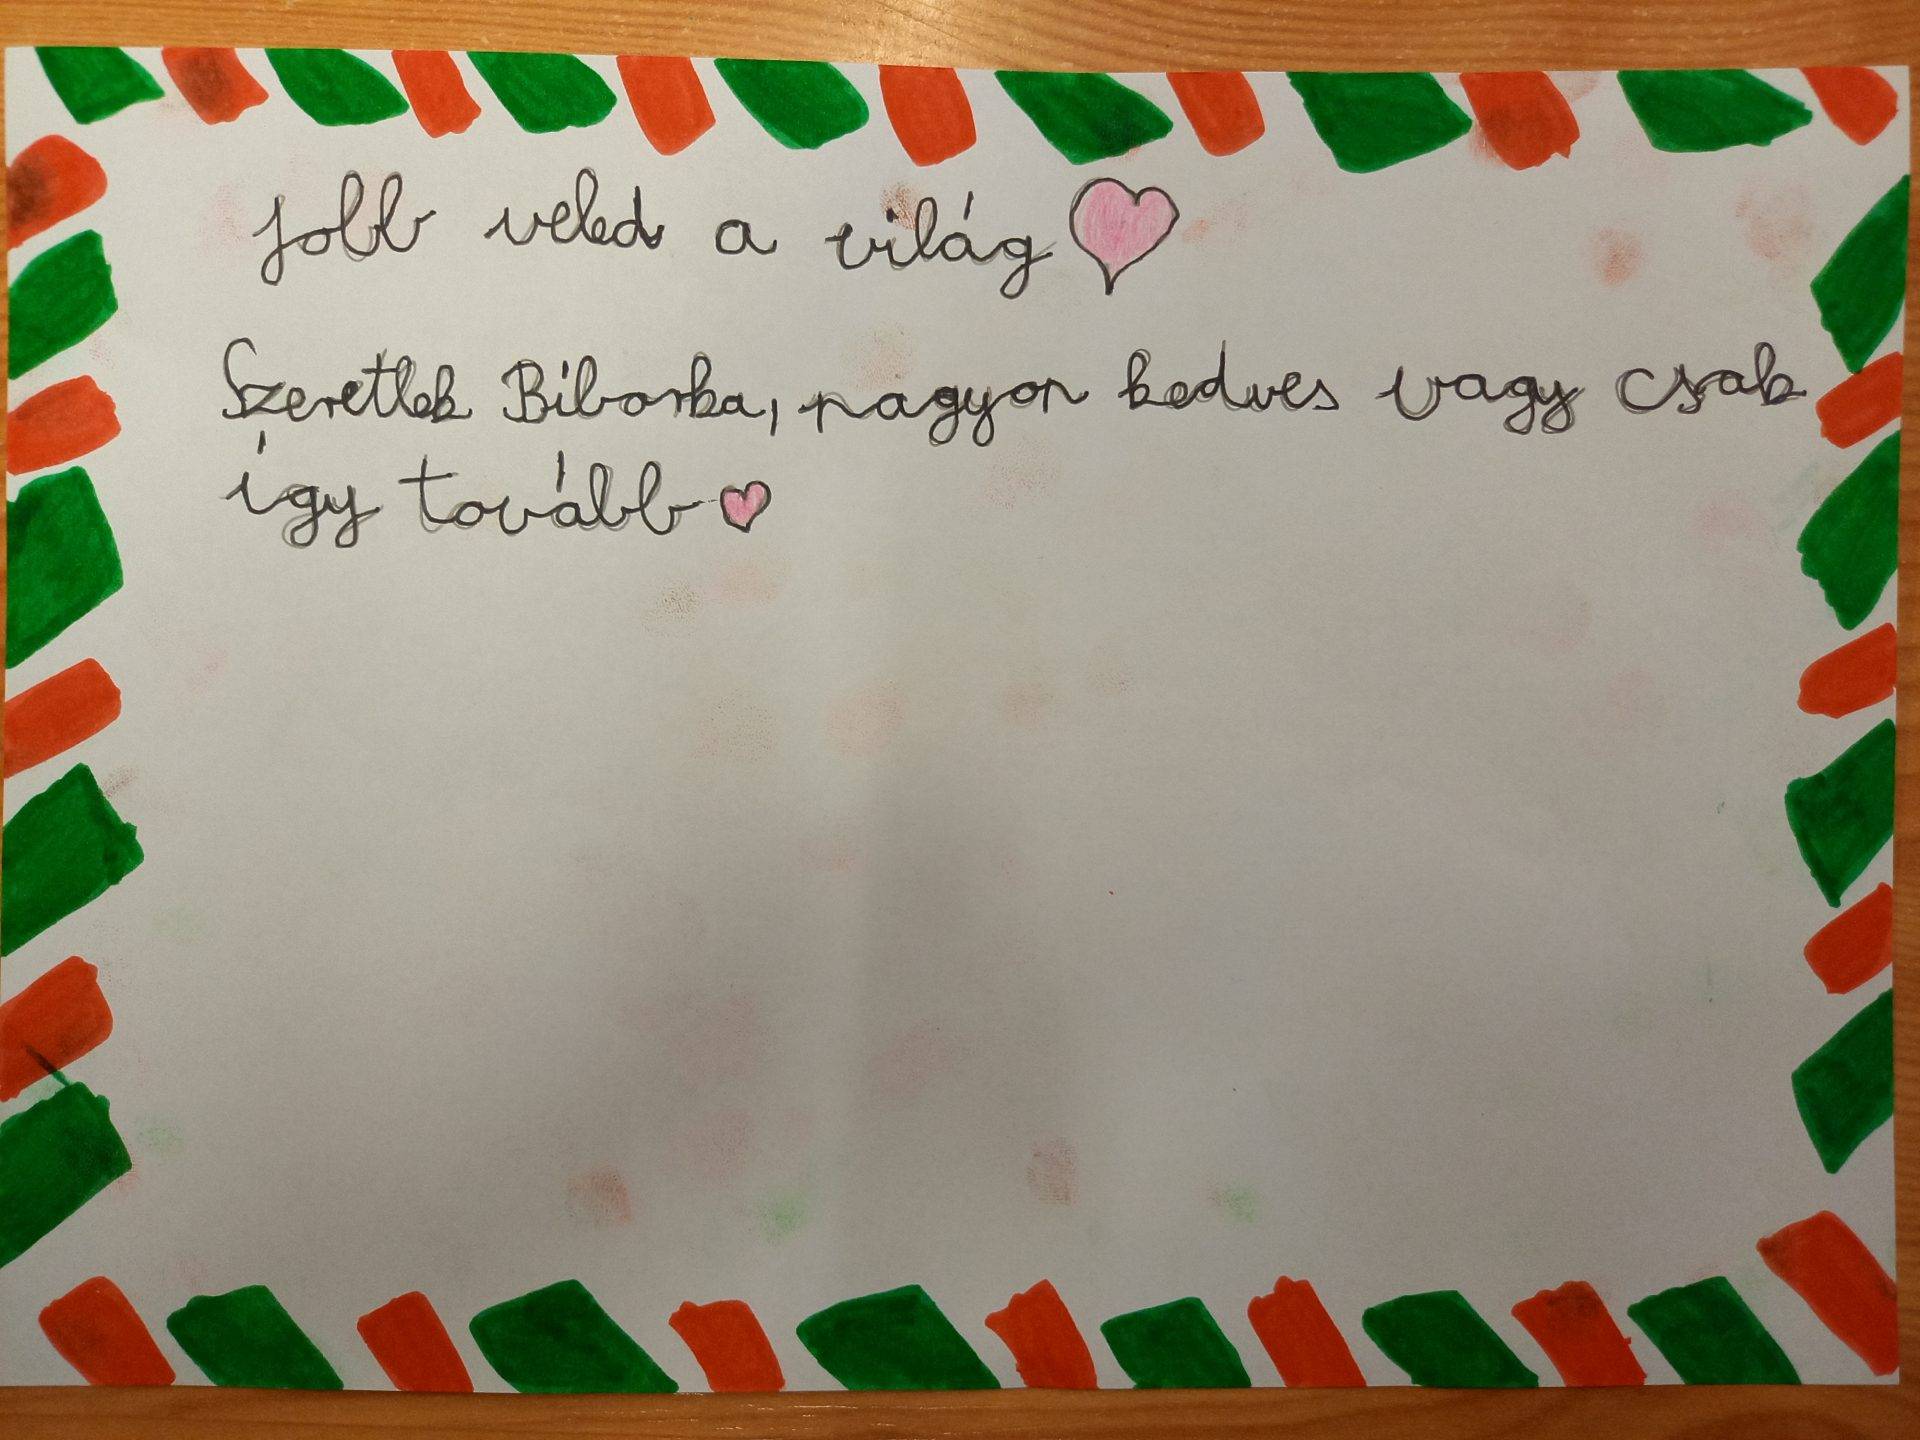 Jobb veled a világ
Szeretlek Biborka, nagyon kedves vagy csak
így tovább